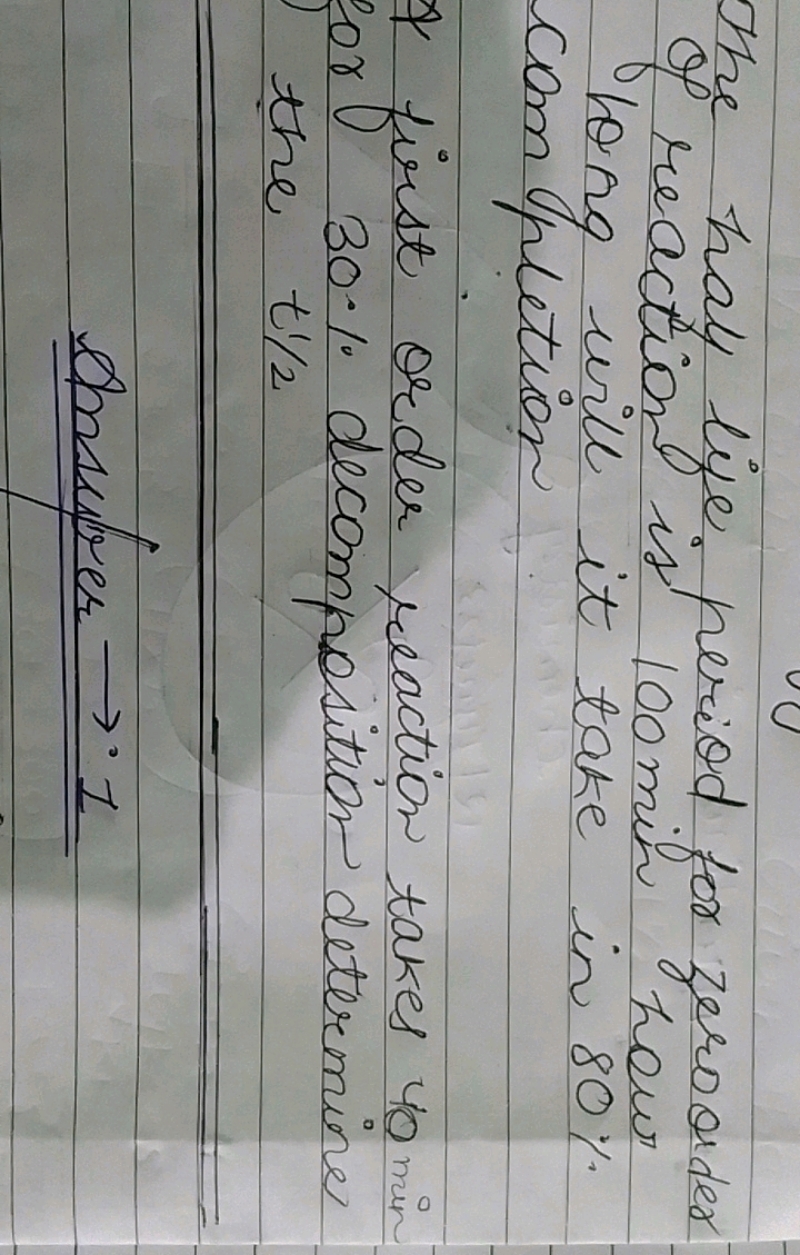 The half life period for zero order
of reaction is 100 min how
long will it take in 80%
completion
A first order reaction takes 40 min
for 30% decomposition determine
the t1/2
Answer → 1